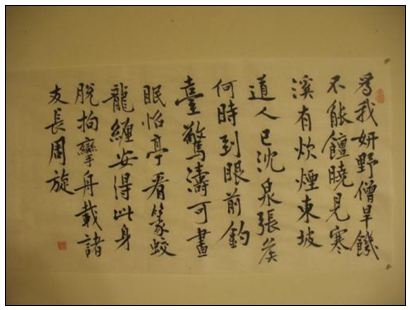 為我妍野僧旱饑
不能饘曉見寒
溪有炊煙東坡
道人已沈泉張侯
何時到眼前釣
臺驚濤可晝
眠怡亭看篆蛟
龍纏安得此身
脫拘攣舟載諸
友長周旋